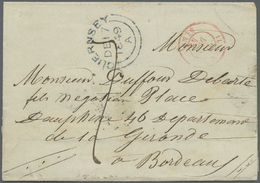 GUERNSEY
DE 7
1849
A
Monsieur
Monsieur Duffour Debarte
fils negotiant Place
Dauphine 46 Departement
de la Gironde
a Bordeaux